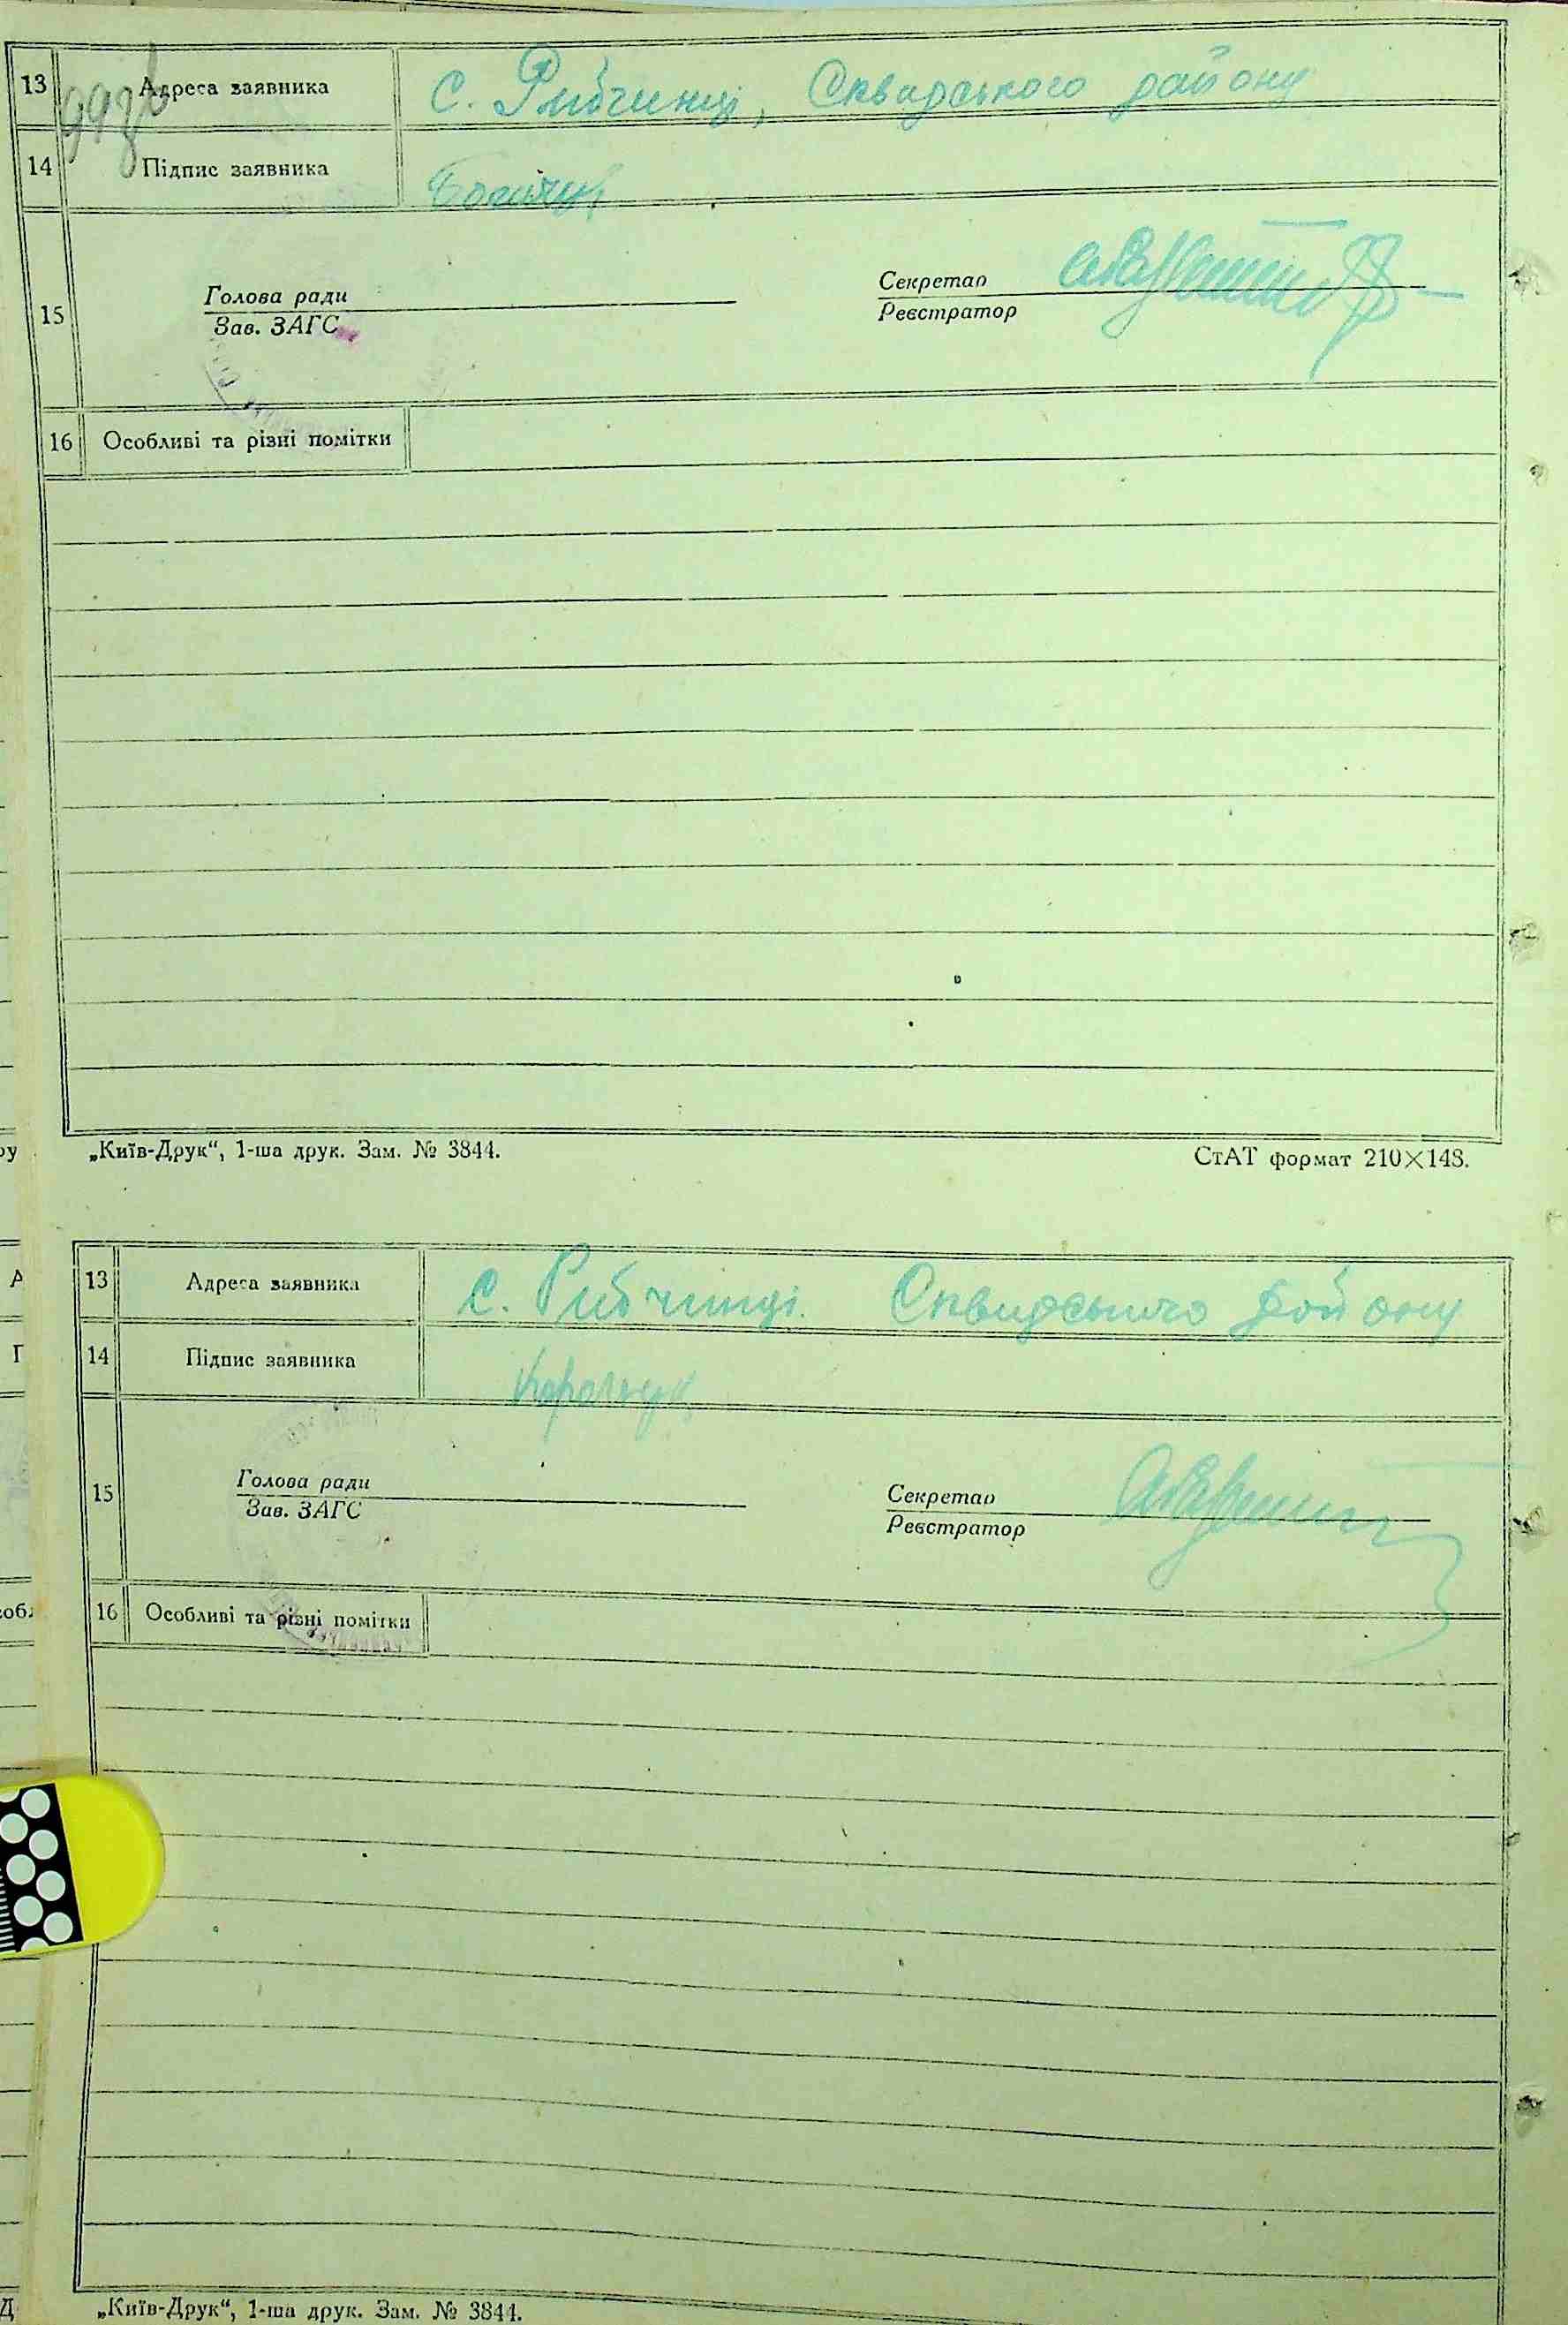 13 Адреса заявника с. Рибчинці, Сквирського району
99зв
14 Підпис заявника
15 Голова ради Секретар
Зав. ЗАГС Реєстратор
16 Особливі та різні помітки
„Київ-Друк“, 1-ша друк. Зам. № 3844. СтАТ формат 210×148.
13 Адреса заявника с. Рибчинці. Сквирського району
14 Підпис заявника
15 Голова ради Секретар
Зав. ЗАГС Реєстратор
16 Особливі та різні помітки
„Київ-Друк“, 1-ша друк. Зам. № 3844.